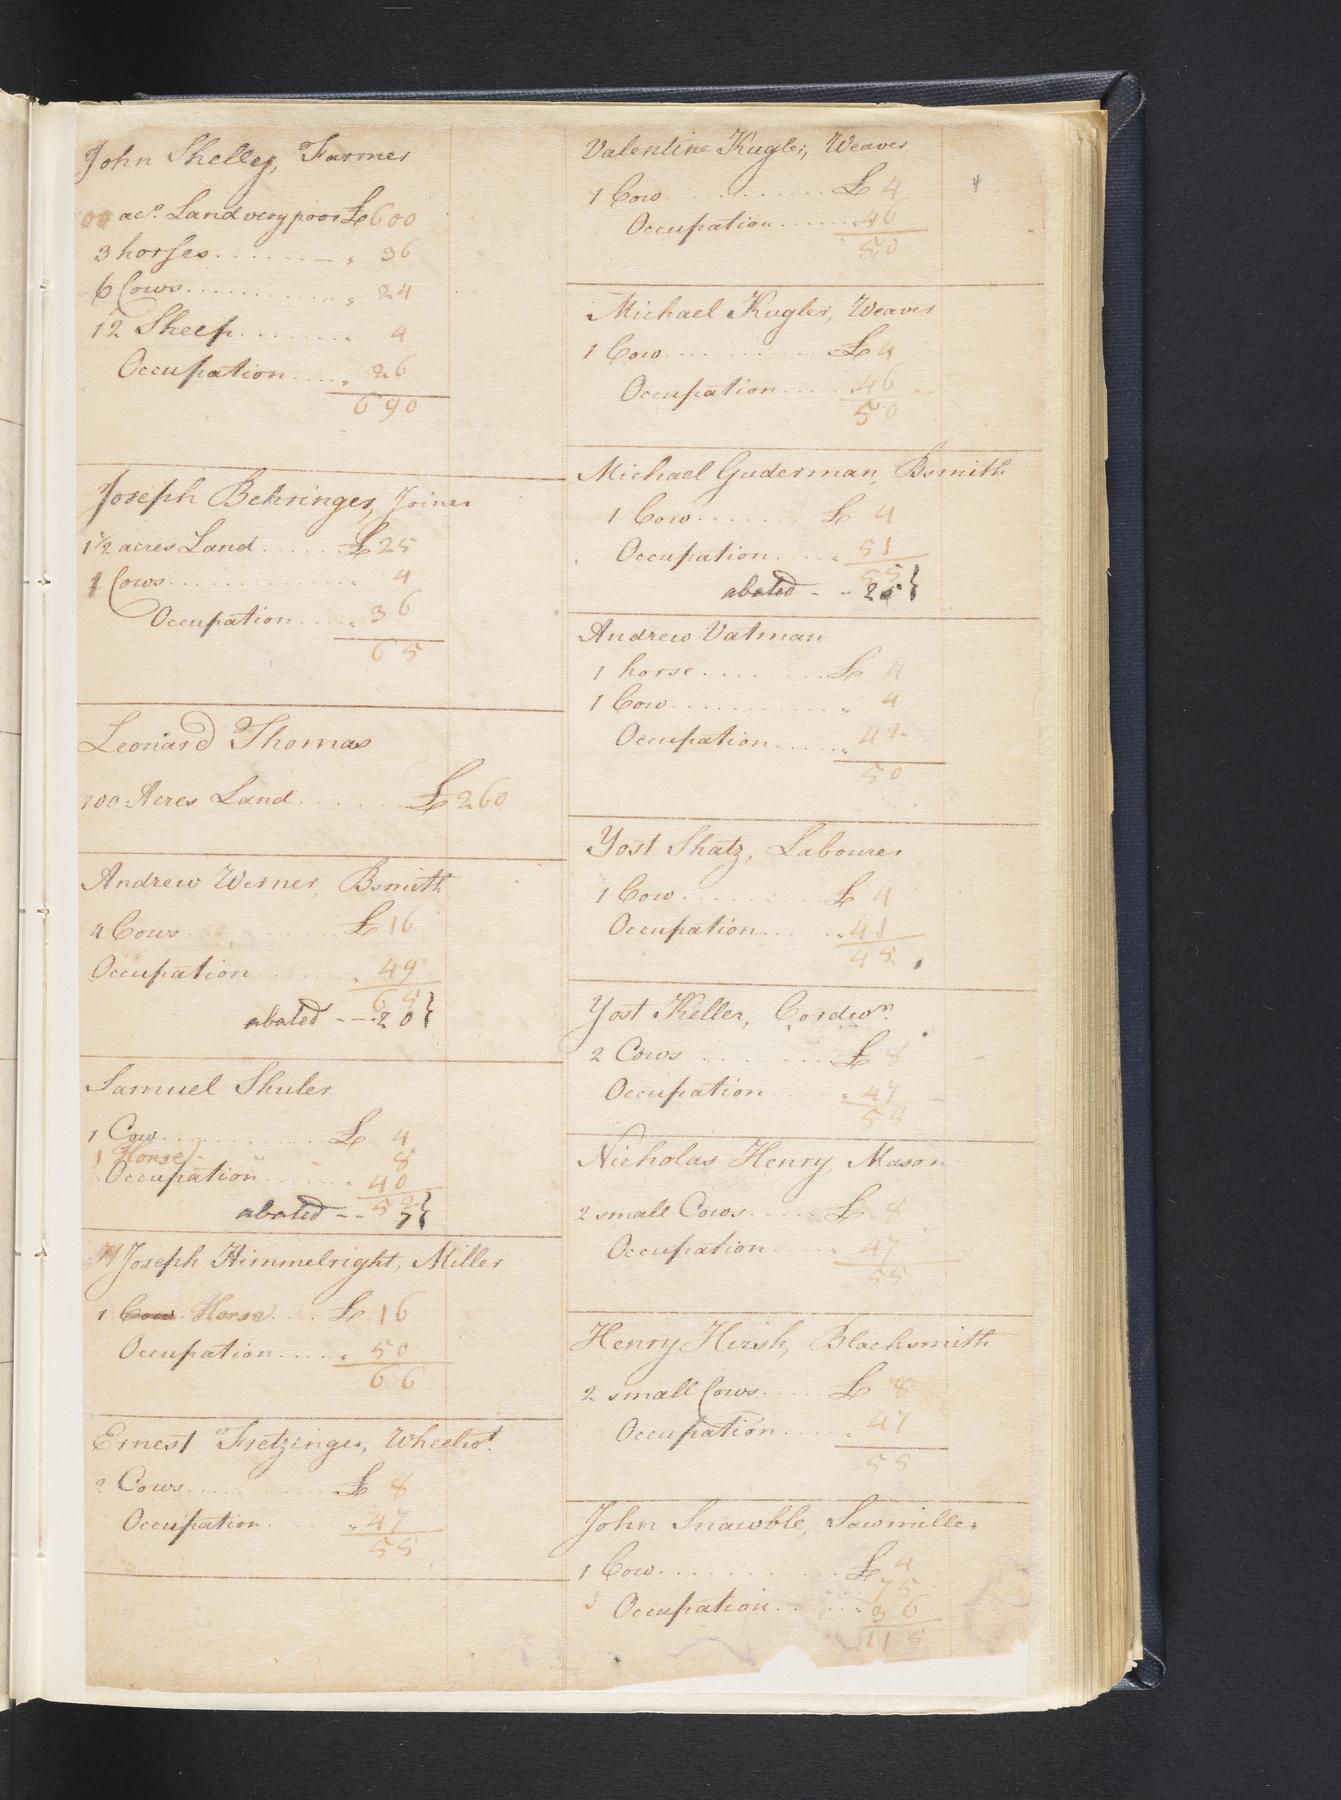 John Shelley, Farmer
00 acs. Land very poor £600
3 horses . . . . . . . . „ 36
6 Cows . . . . . . . . „ 24
12 Sheep . . . . . . . „ 4
Occupation . . . . „ 26
690
Joseph Behringer, Joiner
1 1/2 acres Land . . . . . £25
1 Cows . . . . . . . . . . „ 4
Occupation . . . . „ 36
65
Leonard Thomas
100 Acres Land . . . . . £260
Andrew Werner, Bsmith
4 Cows . . . . . . . £16
Occupation . . . . . „ 49
65
abated - - . 20
Samuel Shuler
1 Cow . . . . . . . . £ 4
1 Horse . . 8
Occupation . . . . . „ 40
52
abated - - 7
Joseph Himmelright, Miller
1 Cow Horse . . . £16
Occupation . . . . „ 50
66
Ernest Fretzinger, Wheelwt.
2 Cows . . . . . . . . £ 8
Occupation . . . . . „ 47
55
4
Valentine Kugler, Weaver
1 Cow . . . . . . . . . £ 4
Occupation . . . . . „ 46
50
Michael Kugler, Weaver
1 Cow . . . . . . . . . £ 4
Occupation . . . . „ 46
50
Michael Guderman, Bsmith
1 Cow . . . . . . . £ 4
Occupation . . . . „ 51
55
abated - - 25
Andrew Vatman
1 horse . . . . . . . . £ 4
1 Cow . . . . . . . . . . „ 4
Occupation . . . . . „ 42
50
Yost Shatz, Labourer
1 Cow . . . . . . . . £ 4
Occupation . . . . . „ 41
45
Yost Keller, Cordwr.
2 Cows . . . . . . . £ 8
Occupation . . . . „ 47
55
Nicholas Henry, Mason
2 small Cows . . . . . £ 8
Occupation . . . . „ 47
55
Henry Hirsh, Blacksmith
2 small Cows . . . . £ 8
Occupation . . . . „ 47
55
John Snawble, Sawmiller
1 Cow . . . . . . . . . . £ 4
75
Occupation . . . . „ 36
115